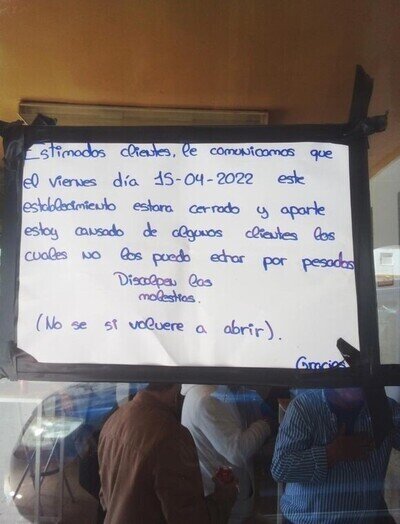 Estimados clientes, le comunicamos que
el viernes día 15-04-2022 este
establecimiento estara cerrado y aparte
estoy cansado de algunos clientes los
cuales no los puedo echar por pesados
Discolpen las
molestias.
(No se si volvere a abrir).
Gracias